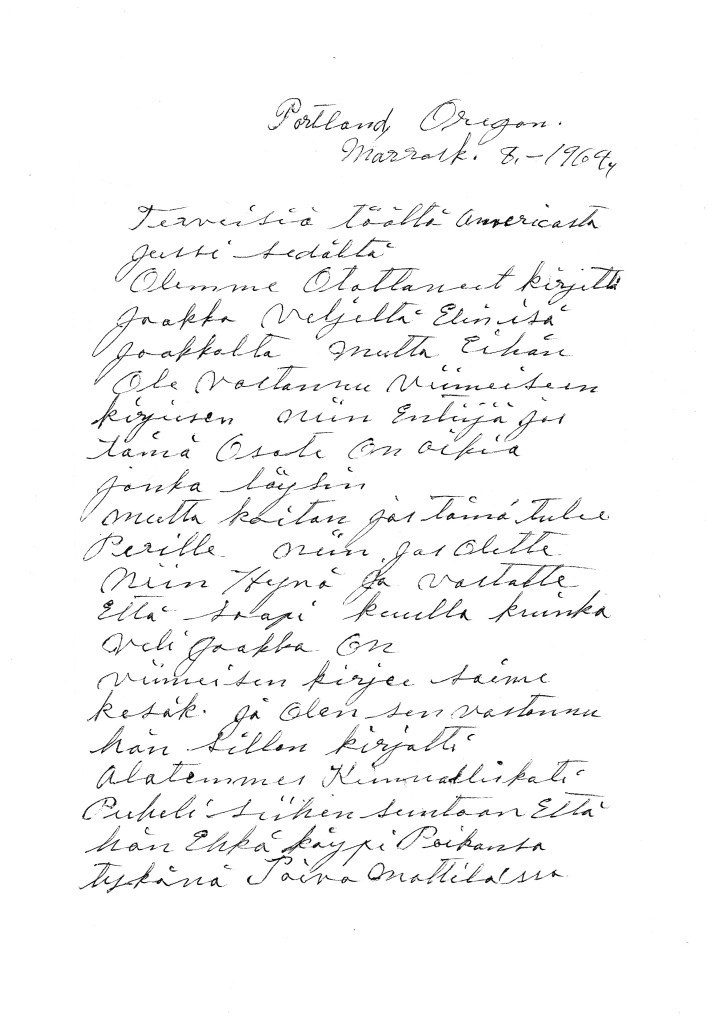 Portland, Oregon.
Marrask. 8.-1969
Terveisiä täältä Americasta
Jussi sedältä
Olemme Otottaneet kirjettä
Jaakko Veljeltä Elin isä
Jaakkolta mutta Eihän
Ole Vastannu Viimeiseen
kirjeisen niin Entiijä jos
tämä Osote On oikia
jonka löysin
mutta koitan jos tämä tulee
Perille niin jos Olette
Niin Hyvä ja vastatte
Että saapi kuulla kuinka
Veli Jaakko On
viimeisen kirjee saime
kesäk. ja Olen sen vastannu
hän sillon kirjotti
Puheli siihen suntaan Että
hän Ehkä käypi Poikansa
tykänä Toivo Mattilassa